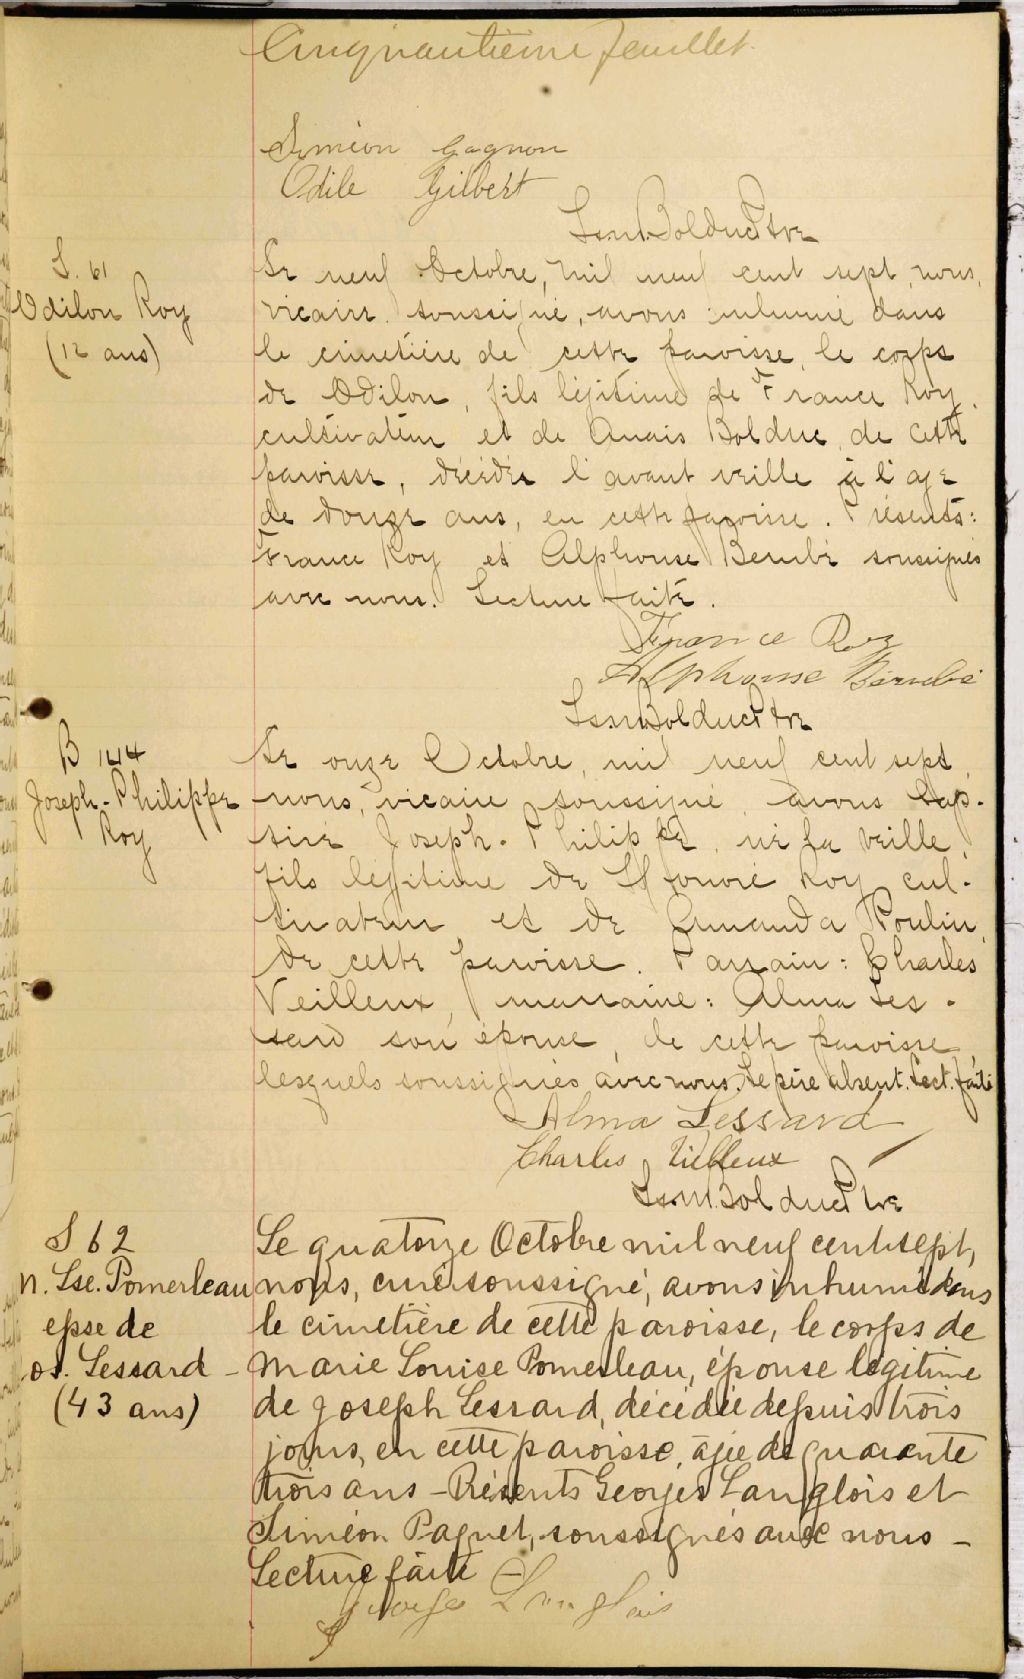 Cinquantième feuillet.
Siméon Gagnon
Odile Gilbert
Bolduc Ptre
S. 61
Odilon Roy
(12 ans)
Le neuf Octobre, mil neuf cent sept, nous,
vicaire soussigné, avons inhumé dans
le cimetière de cette paroisse, le corps
de Odilon, fils légitime de France Roy,
cultivateur et de Anais Bolduc, de cette
paroisse, décédé l'avant veille à l'age
de douze ans, en cette paroisse. Présents:
France Roy et Alphonse Berubé soussignés
avec nous. Lecture faite.
France Roy
Alphonse Berubé
Bolduc Ptre
B 144
Joseph-Philippe
Roy
Le onze Octobre, mil neuf cent sept,
nous, vicaire soussigné avons bap-
tisé Joseph-Philippe, né la veille,
fils légitime de Honoré Roy cul-
tivateur et de Amanda Poulin,
de cette paroisse. Parrain: Charles
Veilleux, marraine: Alma Les-
sard son épouse, de cette paroisse
lesquels soussignés avec nous. Le père absent. Lect. faite
Alma Lessard
Charles Veilleux
Bolduc Ptre
S 62
M. Lse. Pomerleau
epse de
Jos. Lessard -
(43 ans)
Le quatorze Octobre mil neuf cent sept,
nous, curé soussigné, avons inhumé dans
le cimetière de cette paroisse, le corps de
Marie Louise Pomerleau, épouse légitime
de Joseph Lessard, décédée depuis trois
jours, en cette paroisse, âgée de quarante
trois ans - Présents Georges Langlois et
Siméon Paquet, soussignés avec nous -
Lecture faite -
George Langlois